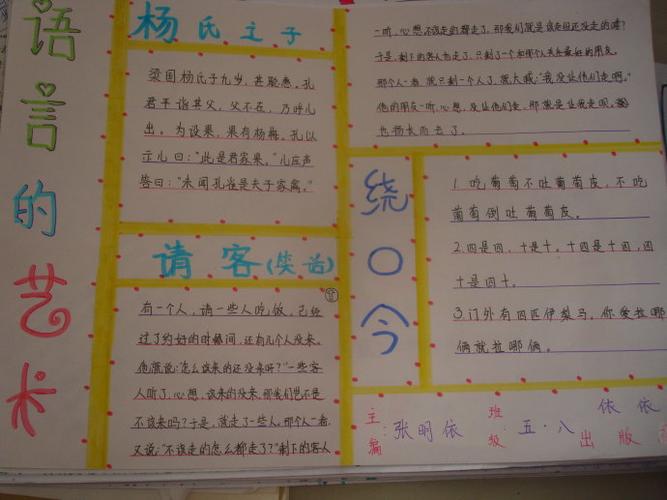 语言的艺术
杨氏之子
梁国杨氏子九岁，甚聪惠。孔
君平诣其父，父不在，乃呼儿
出。为设果，果有杨梅。孔以
示儿曰：“此是君家果。”儿应声
答曰：“未闻孔雀是夫子家禽。”
请客(笑话)
有一个人，请一些人吃饭，已经
过了约好的时候间，还有几个人没来。
他就说：“怎么该来的还没来呀？”一些客
人听了，心想，该来的没来，那我们岂不是
不该来吗？于是，就走了一些人。那个人一看，
又说：“不该走的怎么都走了？”剩下的客人
一听，心想不该走的都走了，那我们就是该走但还没走的喽？
于是，剩下的客人也走了，只剩了一个和那个人关系最好的朋友。
那个人一看，就只剩一个人了，就大喊：“我没让他们走啊。”
他的朋友一听，心想，没让他们走，那就是让我走呗。
也扬长而去了。
绕口令
1.吃葡萄不吐葡萄皮，不吃
葡萄倒吐葡萄皮。
2.四是四，十是十，十四是十四，四
十是四十。
3.门外有四匹伊犁马，你爱拉哪
俩就拉哪俩。
主编：张明依
班级：五·八
依依出版